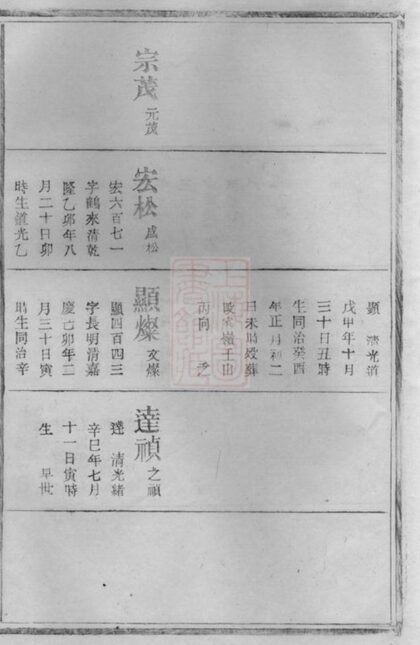 宗茂 元茂
宏松 盛松
宏六百七一
字鶴來清乾
隆乙卯年八
月二十日卯
時生道光乙
顯 清光道
戊申年十月
三十日丑時
生同治癸酉
年正月初二
日未時歿葬
嶺王山
向
顯燦 文燦
顯四百四三
字長明清嘉
慶己卯年二
月三十日寅
時生同治辛
達禎 之禎
達 清光緒
辛巳年七月
十一日寅時
生 早世